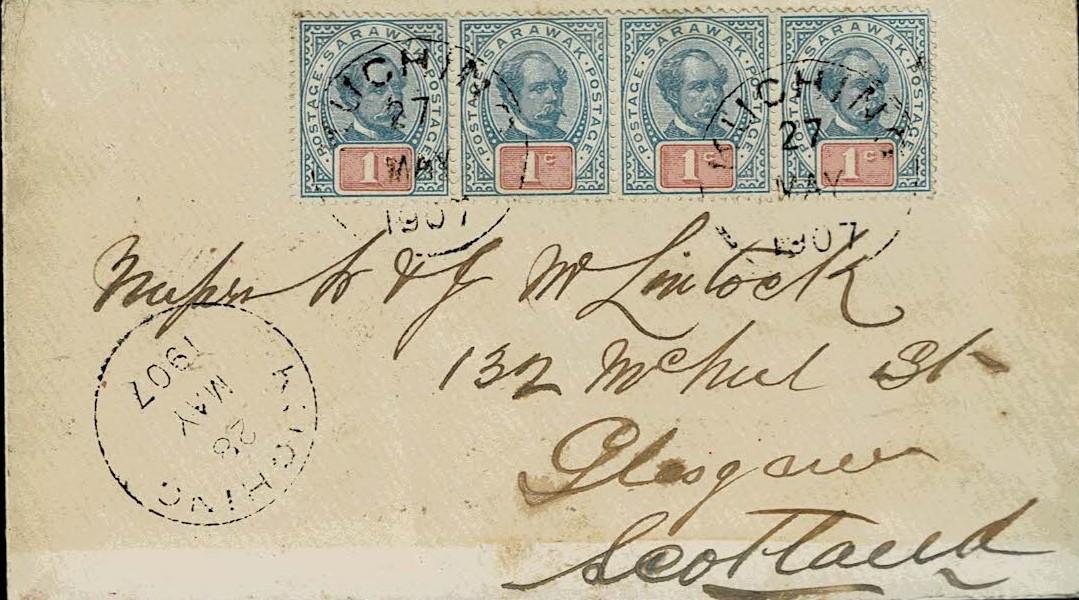 POSTAGE · SARAWAK · POSTAGE
POSTAGE · SARAWAK · POSTAGE
POSTAGE · SARAWAK · POSTAGE
POSTAGE · SARAWAK · POSTAGE
1c 1c 1c 1c
KUCHING
27
MAY
1907
KUCHING
27
MAY
1907
Messrs & J McLintock
132 McNeil St
Glasgow
Scotland
KUCHING
26
MAY
1907